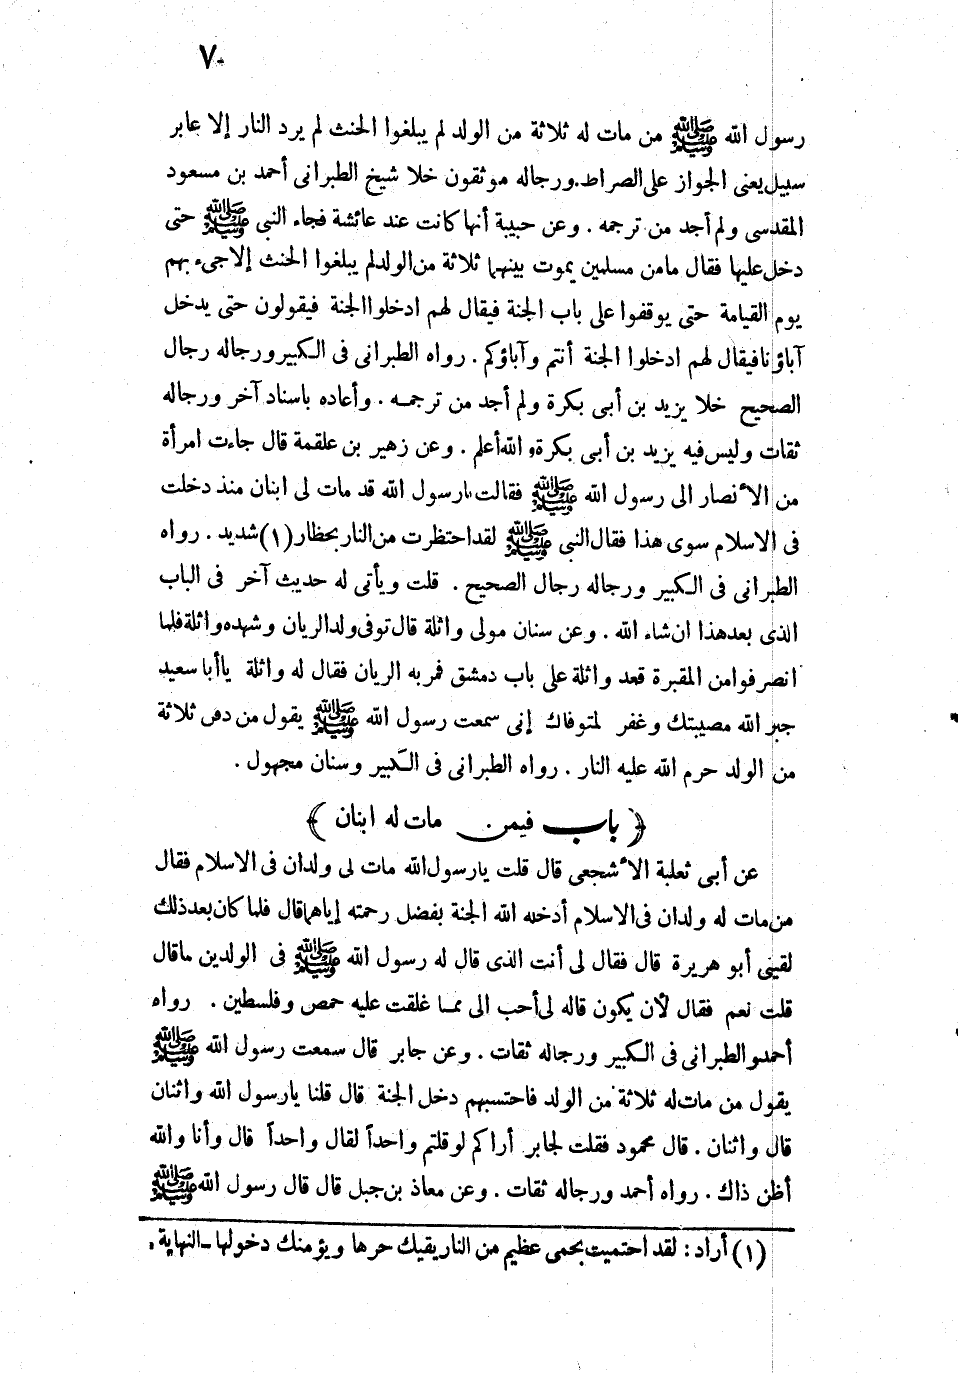 ٧
رسول الله ﷺ من مات له ثلاثة من الولد لم يبلغوا الحنث لم يرد النار إلا عابر
سبيل يعنى الجواز على الصراط. ورجاله موثقون خلا شيخ الطبرانى أحمد بن مسعود
المقدسى ولم أجد من ترجمه . وعن حبيبة أنها كانت عند عائشة فجاء النبى ﷺ حتى
دخل عليها فقال مامن مسلمين يموت بينهما ثلاثة من الولدلم يبلغوا الحنث إلاجىء بهم
يوم القيامة حتى يوقفوا على باب الجنة فيقال لهم ادخلوا الجنة فيقولون حتى يدخل
آباؤنا فيقال لهم ادخلوا الجنة أنتم وآباؤكم . رواه الطبرانى فى الكبير ورجاله رجال
الصحيح خلا يزيد بن أبى بكرة ولم أجد من ترجمه . وأعاده باسناد آخر ورجاله
ثقات وليس فيه يزيد بن أبى بكرة والله أعلم . وعن زهير بن علقمة قال جاءت امرأة
من الأنصار الى رسول الله ﷺ فقالت يارسول الله قد مات لى ابنان منذ دخلت
فى الاسلام سوى هذا فقال النبى ﷺ لقد احتظرت من النار بحظار (١) شديد . رواه
الطبرانى فى الكبير ورجاله رجال الصحيح . قلت ويأتى له حديث آخر فى الباب
الذى بعد هذا ان شاء الله . وعن سنان مولى واثلة قال توفى ولد الريان وشهده واثلة فلما
انصرفوا من المقبرة قعد واثلة على باب دمشق فمر به الريان فقال له واثلة ياأبا سعيد
جبر الله مصيبتك وغفر لمتوفاك إنى سمعت رسول الله ﷺ يقول من دفن ثلاثة
من الولد حرم الله عليه النار . رواه الطبرانى فى الكبير وسنان مجهول .
﴿ باب فيمن مات له ابنان ﴾
عن أبى ثعلبة الأشجعى قال قلت يارسول الله مات لى ولدان فى الاسلام فقال
من مات له ولدان فى الاسلام أدخله الله الجنة بفضل رحمته إياهما قال فلما كان بعد ذلك
لقينى أبو هريرة قال فقال لى أنت الذى قال له رسول الله ﷺ فى الولدين ماقال
قلت نعم فقال لأن يكون قاله لى أحب الى مما غلقت عليه حمص وفلسطين . رواه
أحمد والطبرانى فى الكبير ورجاله ثقات . وعن جابر قال سمعت رسول الله ﷺ
يقول من مات له ثلاثة من الولد فاحتسبهم دخل الجنة قال قلنا يارسول الله واثنان
قال واثنان . قال محمود فقلت لجابر أراكم لو قلتم واحداً لقال واحداً قال وأنا والله
أظن ذاك . رواه أحمد ورجاله ثقات . وعن معاذ بن جبل قال قال رسول الله ﷺ
(١) أراد : لقد احتميت بحمى عظيم من النار يقيك حرها ويؤمنك دخولها ـ النهاية .